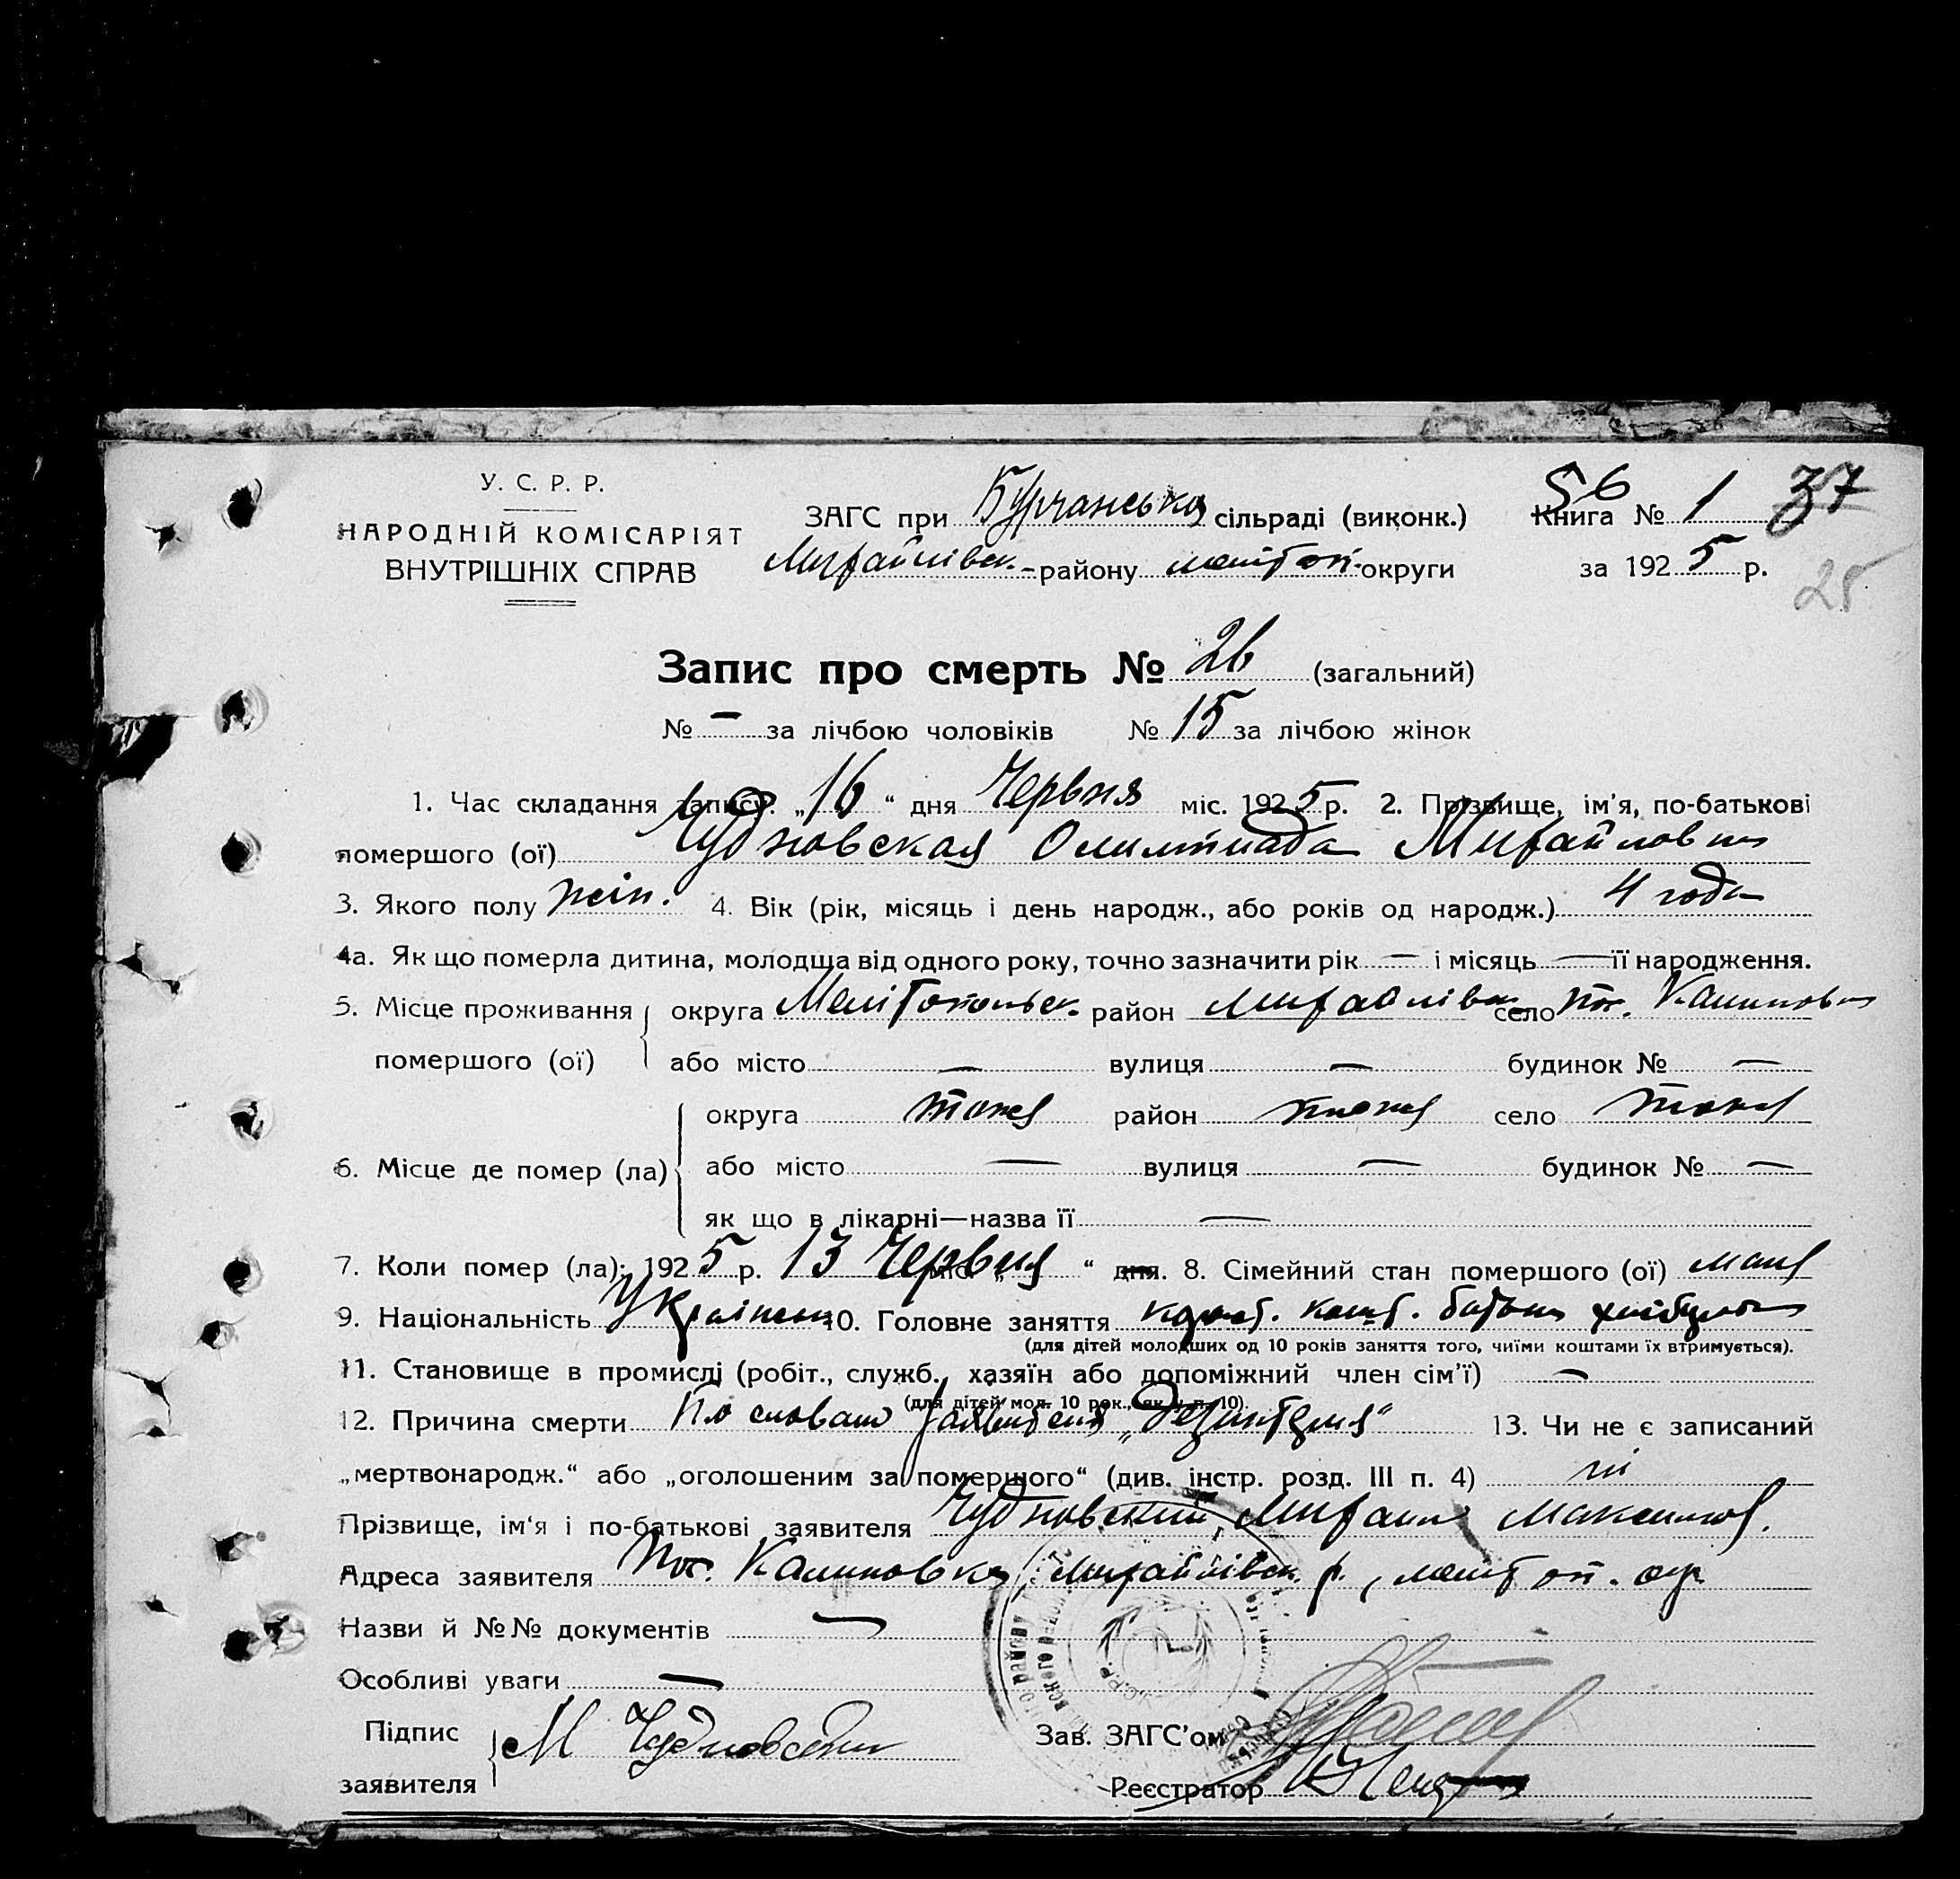 У. С. Р. Р.
НАРОДНІЙ КОМІСАРІЯТ
ВНУТРІШНІХ СПРАВ
ЗАГС при Бурчанська сільраді (виконк.)
Михайлівск.-району меліт оп. округи
56
Книга № 1 37
за 1925 р.
25
Запис про смерть № 26 (загальний)
№ — за лічбою чоловіків № 15 за лічбою жінок
1. Час складання запису: „16“ дня Червня міс. 1925 р. 2. Прізвище, ім'я, по-батькові
помершого (ої) Чудновская Олимпиада Михайловна
3. Якого полу жін. 4. Вік (рік, місяць і день народж., або років од народж.) 4 года
4а. Як що померла дитина, молодша від одного року, точно зазначити рік — і місяць — її народження.
5. Місце проживання помершого (ої) округа Мелітопольск. район Михайлівск село пос. Калиновка
або місто — вулиця — будинок № —
6. Місце де помер (ла) округа тоже район тоже село тоже
або місто — вулиця — будинок № —
як що в лікарні—назва її —
7. Коли помер (ла): 1925 р. 13 Червня міс. „ “ дня. 8. Сімейний стан помершого (ої) мала
9. Національність Українка 10. Головне заняття кошт. батька хлібороба
(для дітей молодших од 10 років заняття того, чиїми коштами їх втримується).
11. Становище в промислі (робіт., служб., хазяїн або допоміжний член сім'ї) —
(для дітей мол. 10 рок., як у п. 10).
12. Причина смерти По словам заявителя 13. Чи не є записаний
„мертвонародж.“ або „оголошеним за помершого“ (див. інстр. розд. III п. 4) ні
Прізвище, ім'я і по-батькові заявителя Чудновский Михаил Максимов.
Адреса заявителя пос. Калиновка, Михайлівск. р., меліт оп. окр.
Назви й №№ документів —
Особливі уваги —
Підпис заявителя М Чудновский
Зав. ЗАГС'ом
Реєстратор